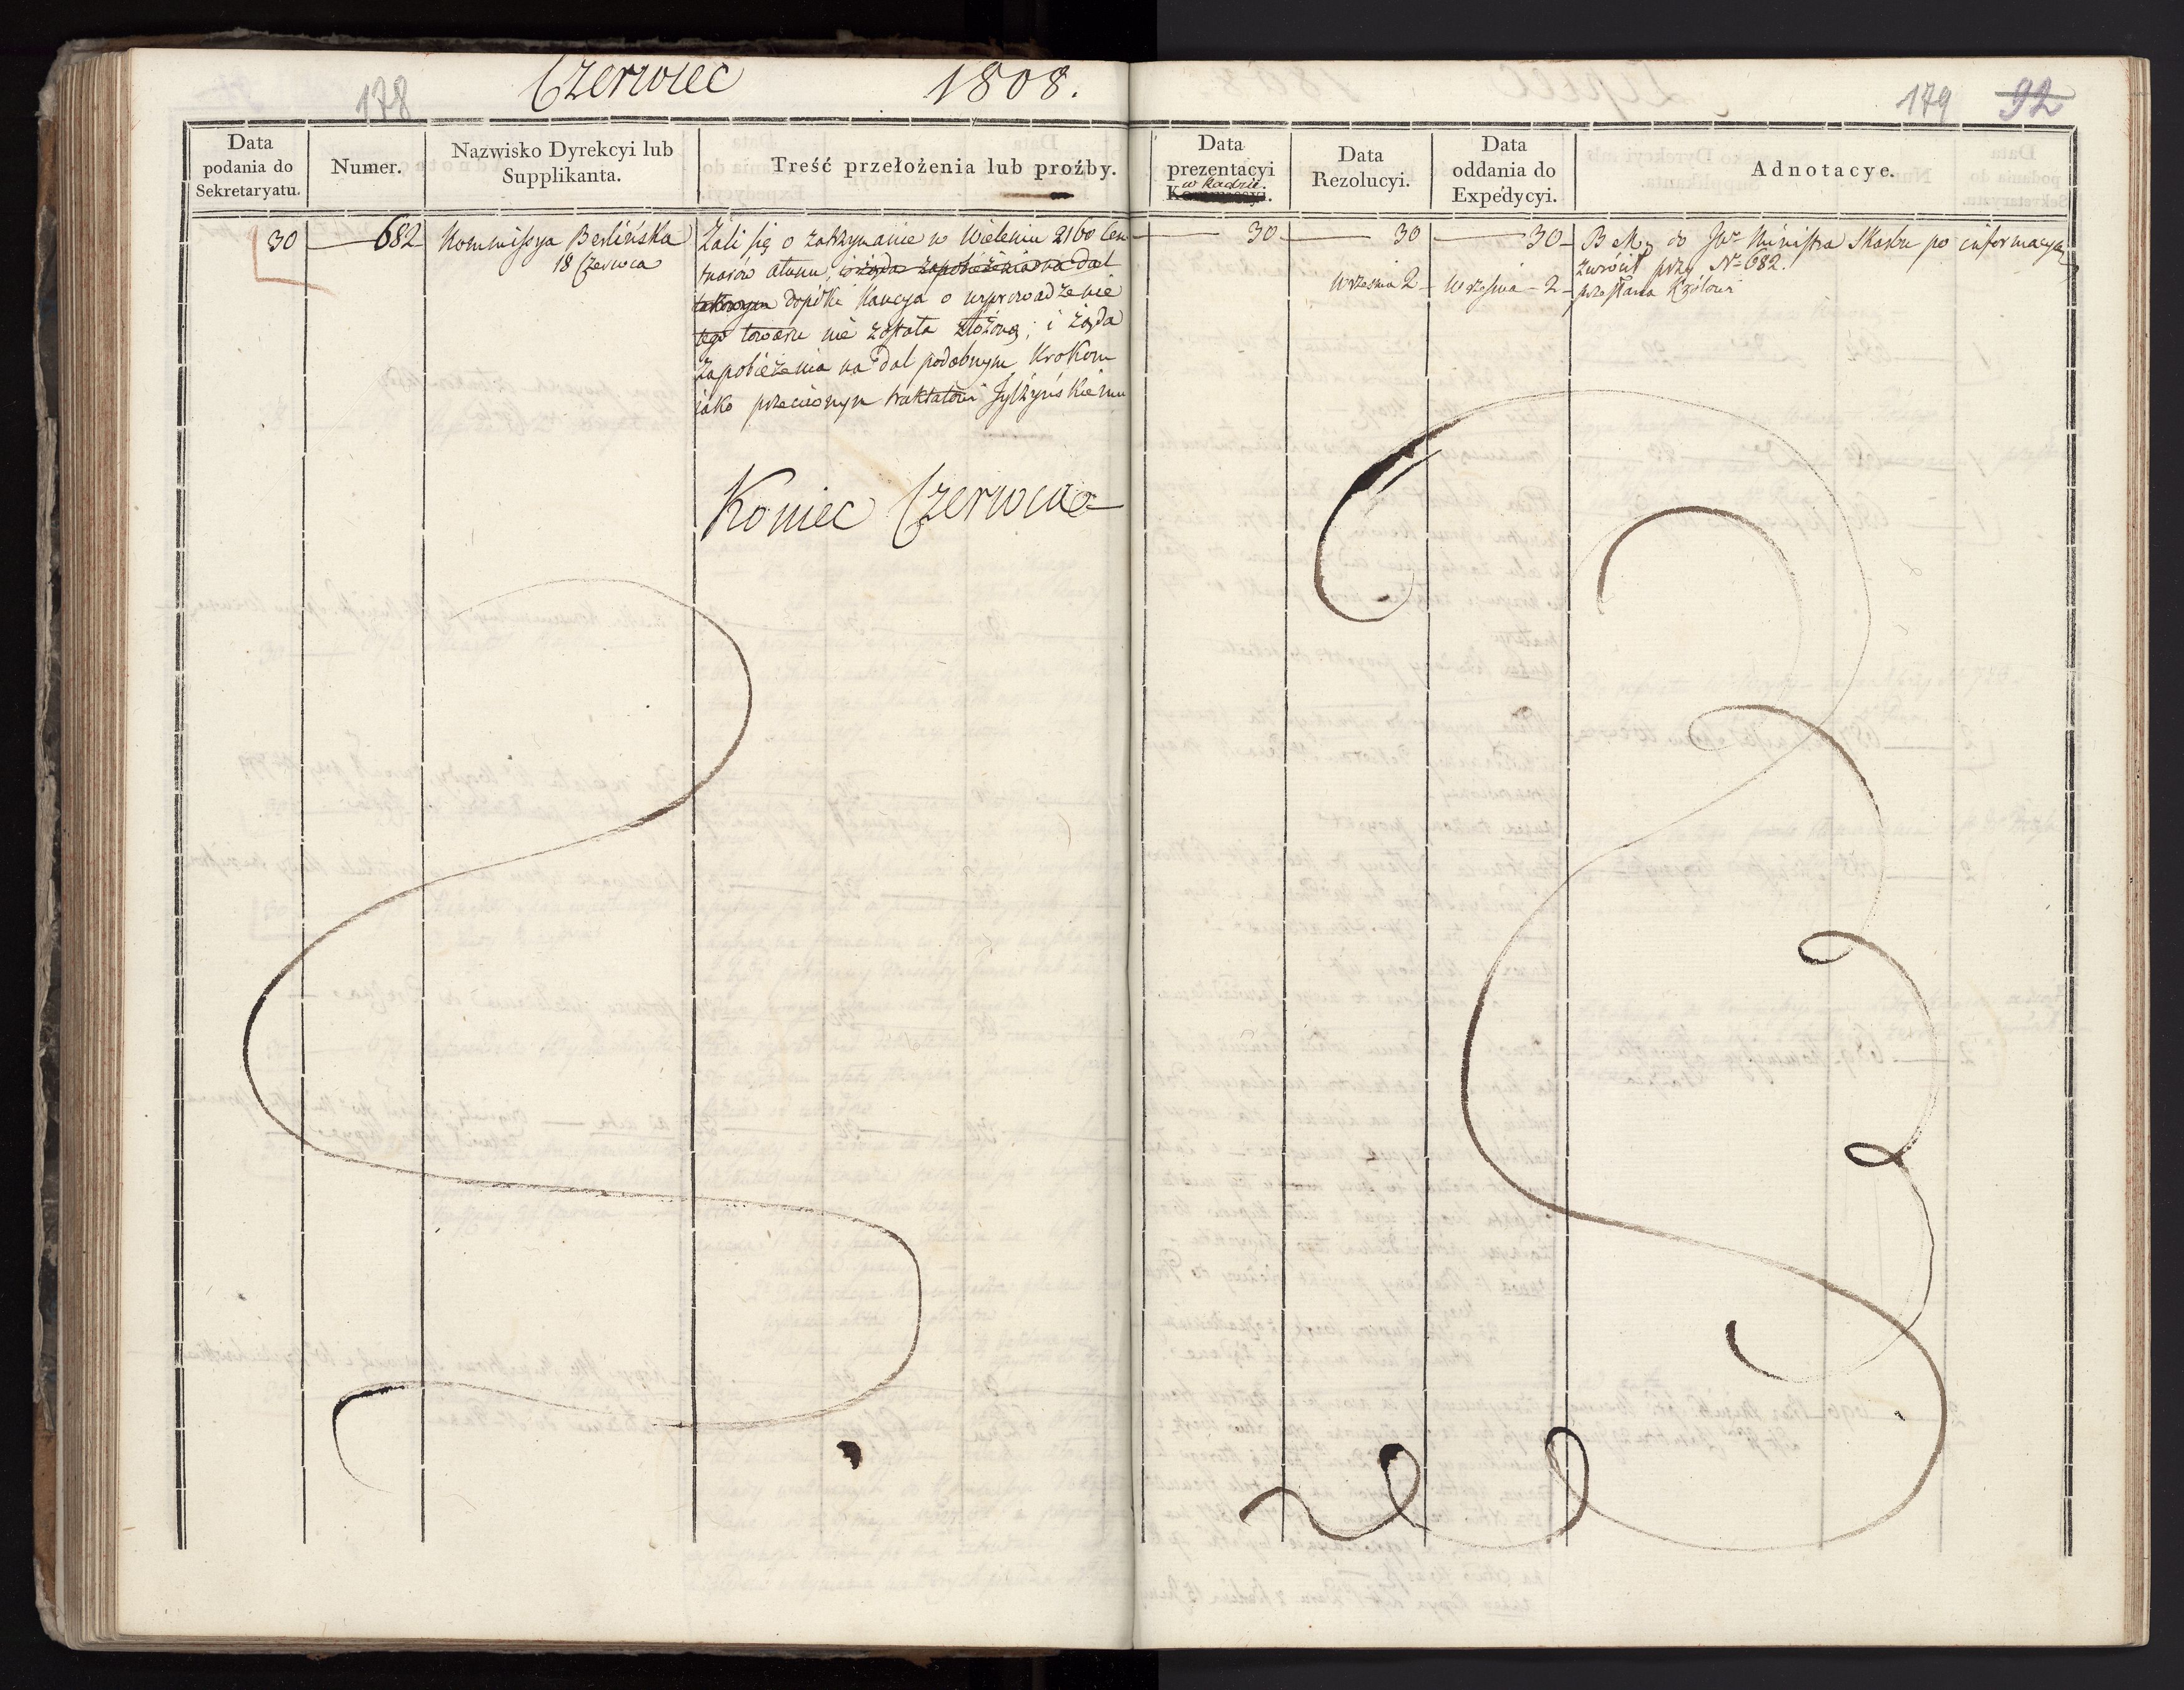 178 Czerwiec 1808.
179 92
Data podania do Sekretaryatu.
Numer.
Nazwisko Dyrekcyi lub Supplikanta.
Treść przełożenia lub proźby.
Data prezentacyi w Radzie.
Data Rezolucyi.
Data oddania do Expédycyi.
Adnotacye.
30 682 Kommissya Berlińska
18 Czerwca
Żali się o zatrzymanie w Wieleniu 2160 Cen
tnarów ałunu, i żąda zapobieżenia na dal
dopóki Kaucya o wyprowadzenie
tego towaru nie została złożoną; i żąda
zapobieżenia na dal podobnym Krokom
jako przeciwnym traktatowi Tylżyńskiemu
30 30 30
Września 2 Września 2
do JW Ministra Skarbu po informacyą
zwrócił przy Nr 682.
przesłana Królowi
Koniec Czerwca